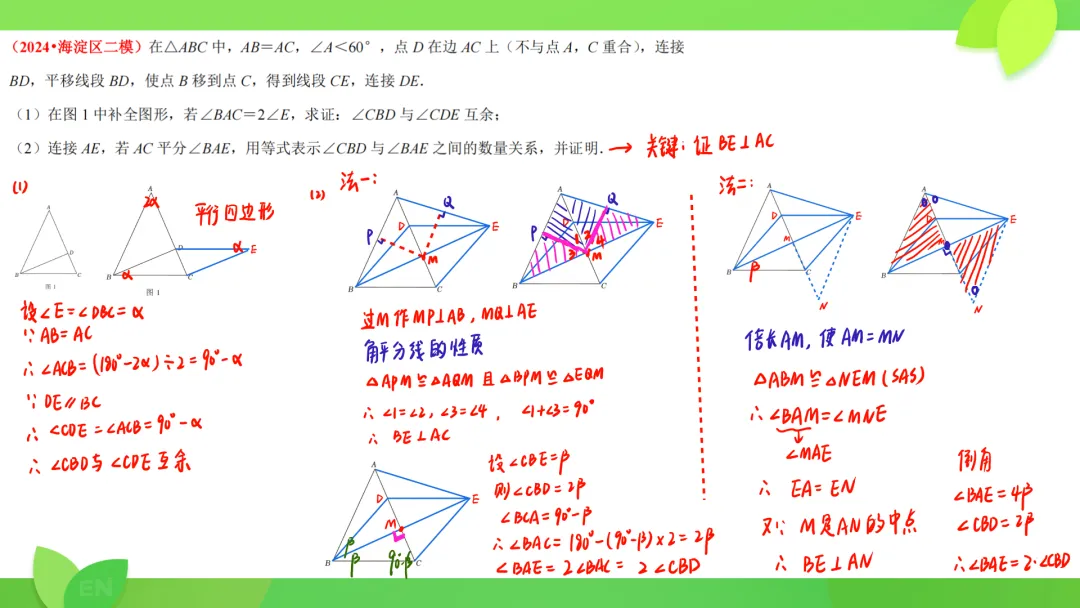 （2024•海淀区二模）在△ABC 中，AB＝AC，∠A＜60°，点 D 在边 AC 上（不与点 A，C 重合），连接
BD，平移线段 BD，使点 B 移到点 C，得到线段 CE，连接 DE．
（1）在图 1 中补全图形，若∠BAC＝2∠E，求证：∠CBD 与∠CDE 互余；
（2）连接 AE，若 AC 平分∠BAE，用等式表示∠CBD 与∠BAE 之间的数量关系，并证明．→ 关键：证 BE⊥AC
(1)
A
D
B
C
图 1
A
2α
平行四边形
D
α
E
B
α
C
图 1
设∠E=∠DBC=α
∵ AB=AC
∴ ∠ACB=(180°-2α)÷2=90°-α
∵ DE∥BC
∴ ∠CDE=∠ACB=90°-α
∴ ∠CBD与∠CDE互余
(2)
法一：
A
Q
D
E
P
M
B
C
A
Q
D
E
P
1
2
3
4
M
B
C
过M作MP⊥AB，MQ⊥AE
角平分线的性质
△APM≌△AQM 且 △BPM≌△EQM
∴ ∠1=∠2，∠3=∠4， ∠1+∠3=90°
∴ BE⊥AC
A
D
E
M
β
B
β
90°-β
C
设∠CBE=β
则∠CBD=2β
∠BCA=90°-β
∴∠BAC=180°-(90°-β)×2=2β
∠BAE=2∠BAC=2∠CBD
法二：
A
D
E
M
B
β
C
N
A
D
E
M
B
N
倍长AM，使AM=MN
△ABM≌△NEM(SAS)
∴ ∠BAM=∠MNE
↓
∠MAE
∴ EA=EN
又∵ M是AN的中点
∴ BE⊥AN
倒角
∠BAE=4β
∠CBD=2β
∴∠BAE=2·∠CBD
EN